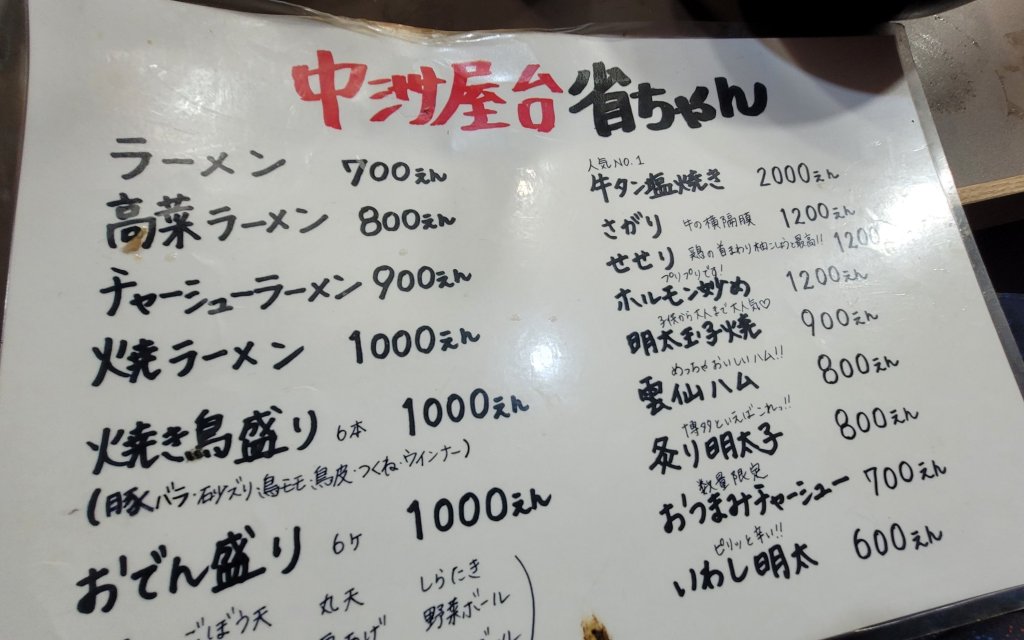 中洲屋台 省ちゃん
ラーメン 700えん
高菜ラーメン 800えん
チャーシューラーメン 900えん
火焼ラーメン 1000えん
火焼き鳥盛り 6本 1000えん
(豚バラ・砂ズリ・鳥モモ・鳥皮・つくね・ウインナー)
おでん盛り 6ケ 1000えん
ごぼう天 丸天 しらたき
野菜ボール
人気NO.1
牛タン塩焼き 2000えん
さがり 牛の横隔膜 1200えん
せせり 鶏の首まわり柚こしょうと最高!! 1200
プリプリです!
ホルモン炒め 1200えん
子供から大人まで大人気♡
明太玉子焼 900えん
めっちゃおいしいハム!!
雲仙ハム 800えん
博多といえばこれっ!!
炙り明太子 800えん
数量限定
おつまみチャーシュー 700えん
ピリッと辛い!!
いわし明太 600えん